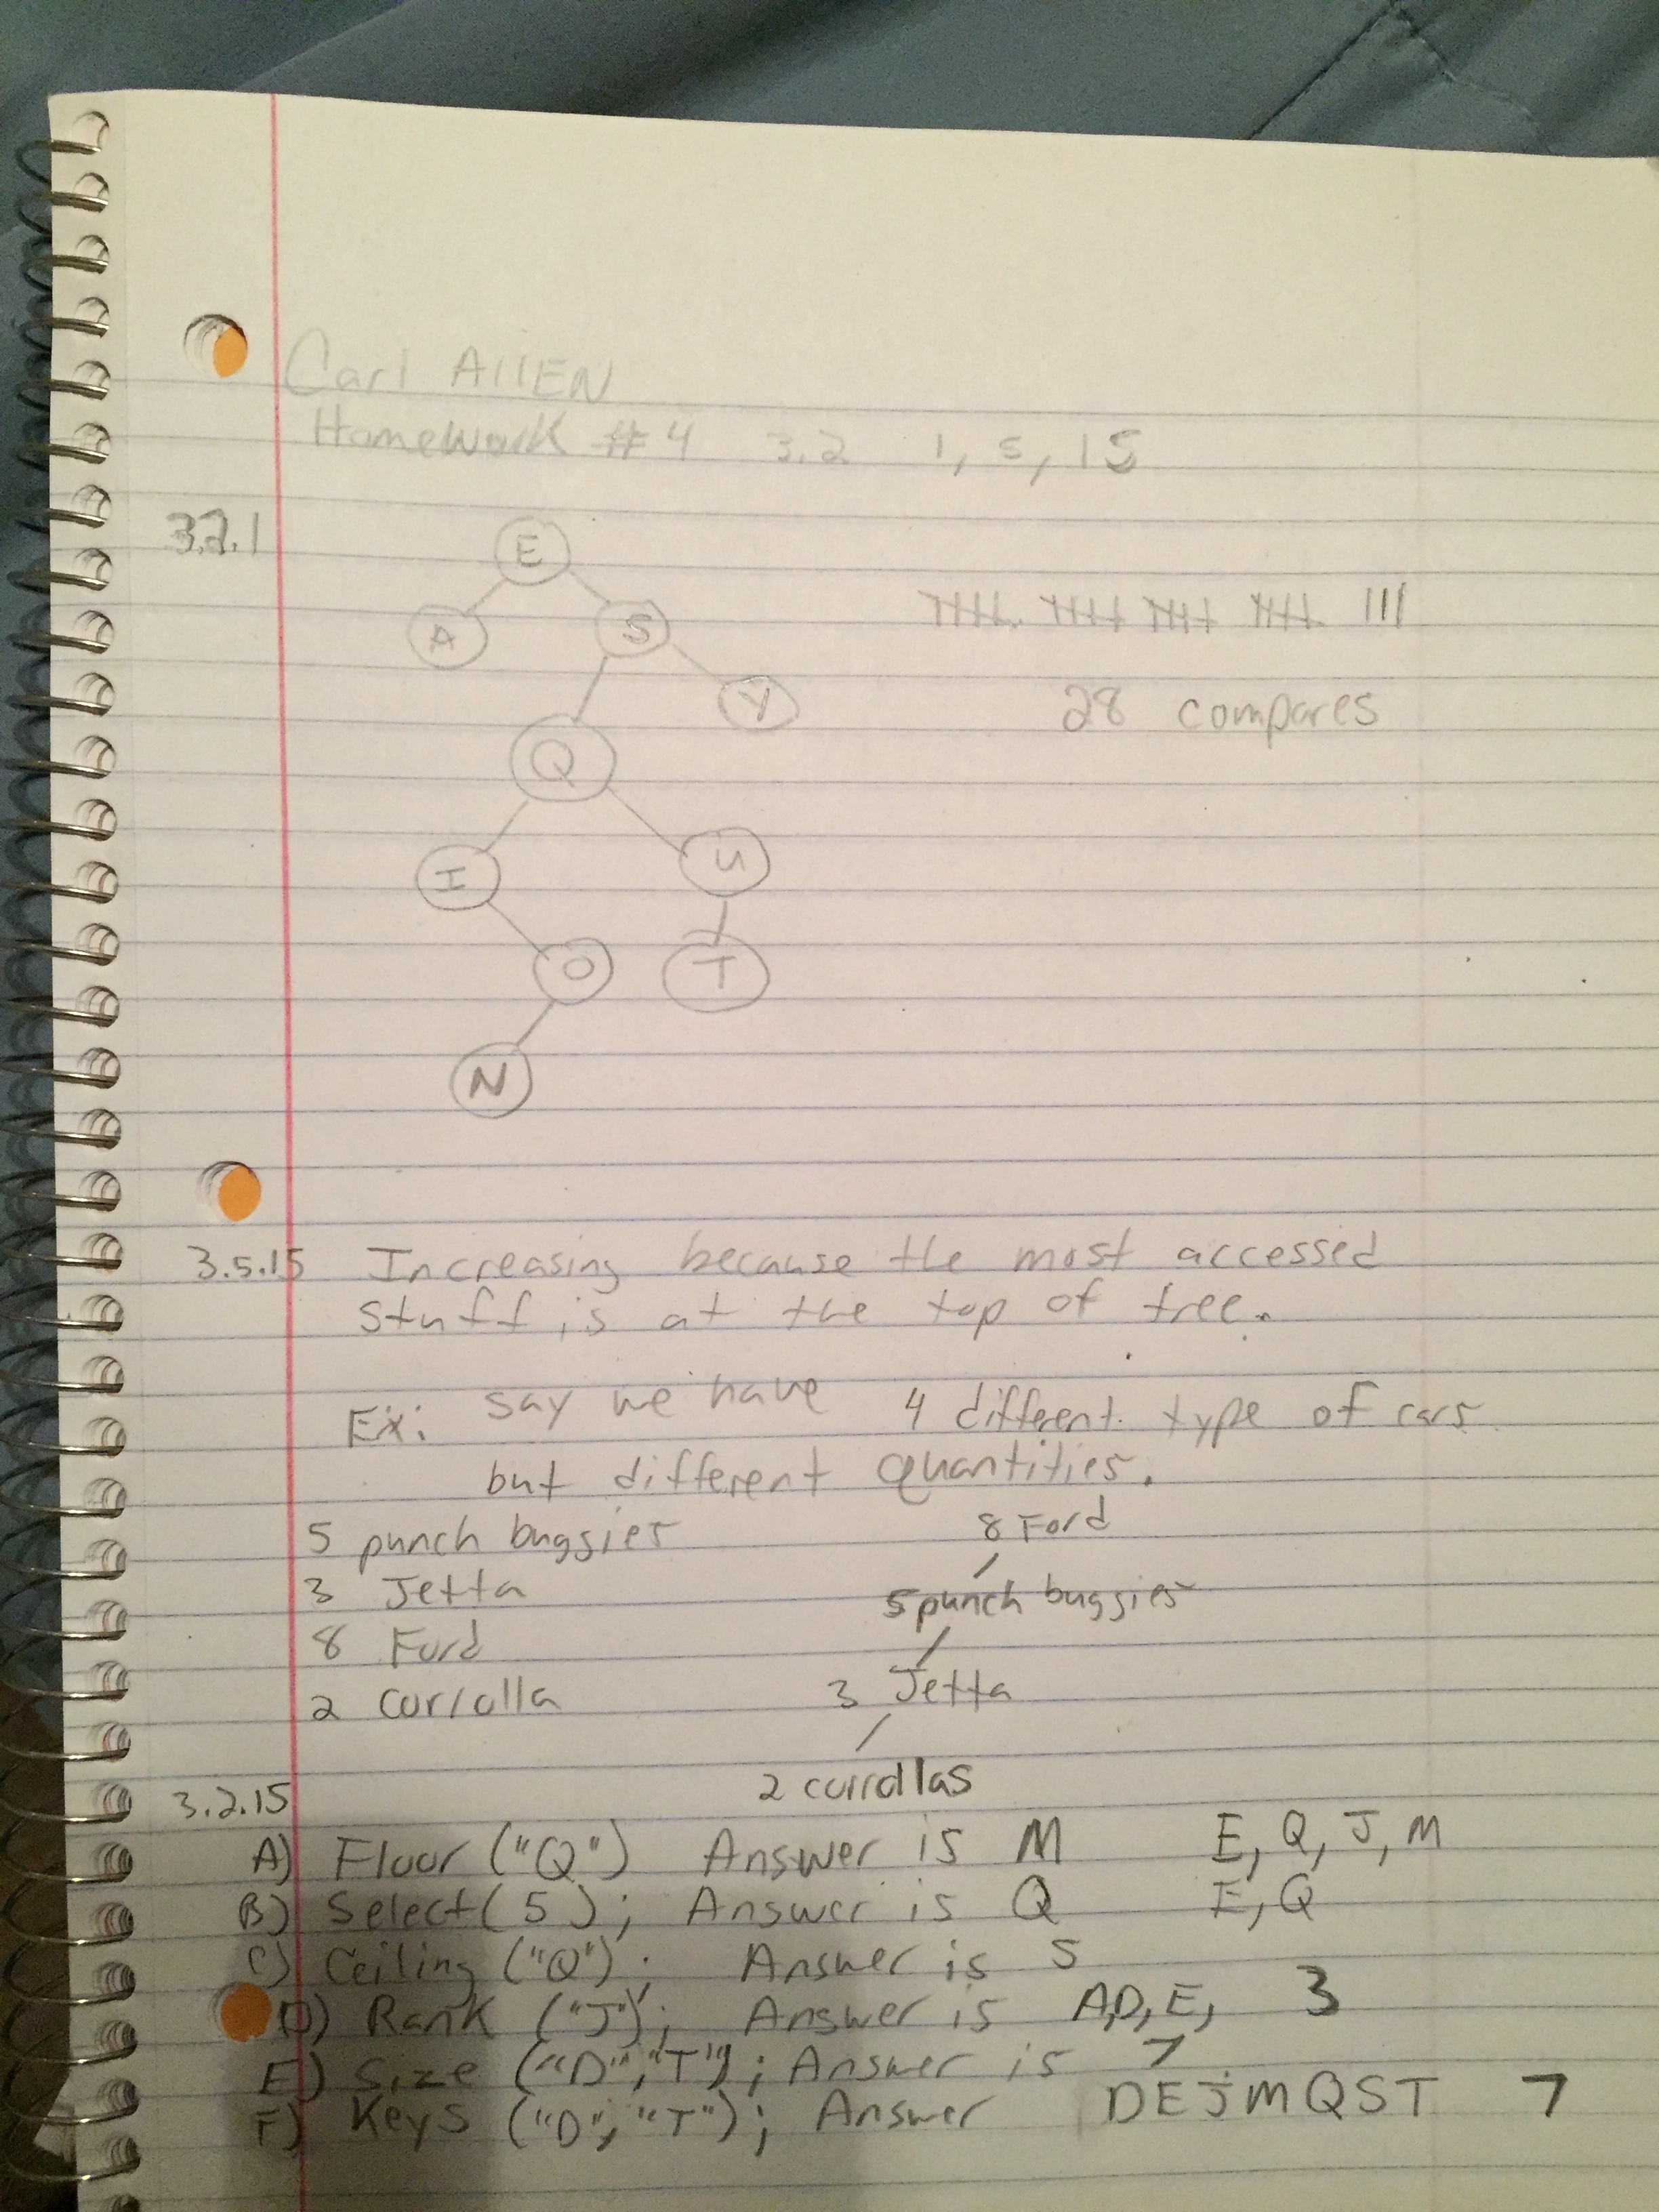 Carl AllEN
HomeWork #4 3.2 1, 5, 15
3.2.1
E
A S
Y
Q
I U
O T
N
28 compares
3.5.15 Increasing because the most accessed
stuff is at the top of tree.
Ex: say we have 4 different type of cars
but different quantities.
5 punch buggies
3 Jetta
8 Ford
2 corrolla
8 Ford
5 punch buggies
3 Jetta
2 corrollas
3.2.15
A) Floor ("Q") Answer is M E, Q, J, M
B) Select(5); Answer is Q E, Q
C) Ceiling ("Q"); Answer is S
D) Rank ("J"); Answer is A,D, E, 3
E) Size ("D","T"); Answer is 7
F) Keys ("D", "T"); Answer DEJMQST 7